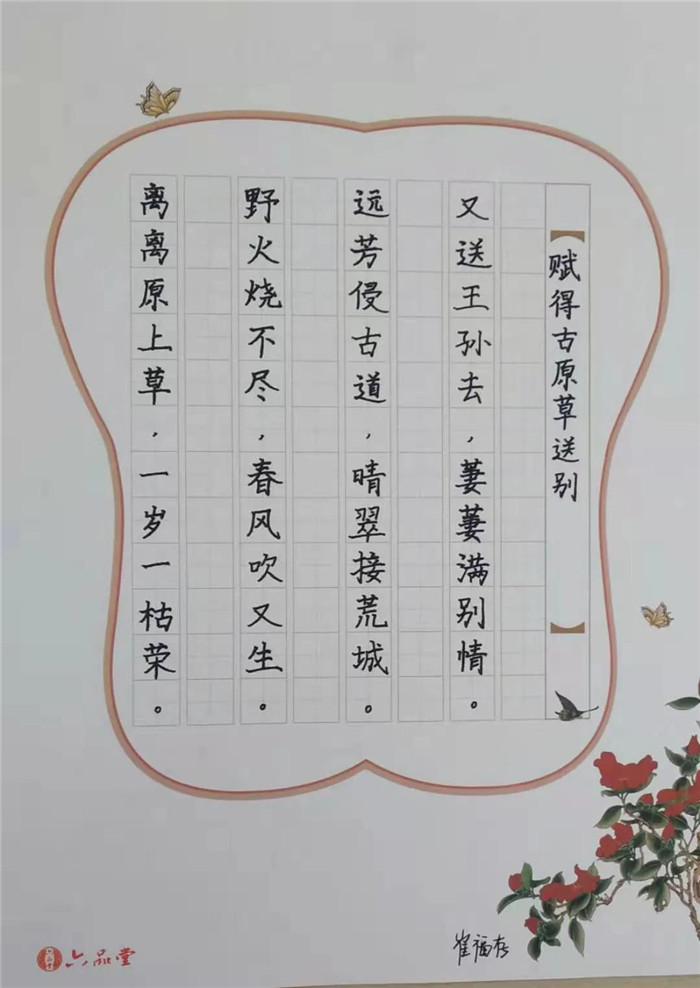 赋得古原草送别
离离原上草，一岁一枯荣。
野火烧不尽，春风吹又生。
远芳侵古道，晴翠接荒城。
又送王孙去，萋萋满别情。
崔福存
六品堂